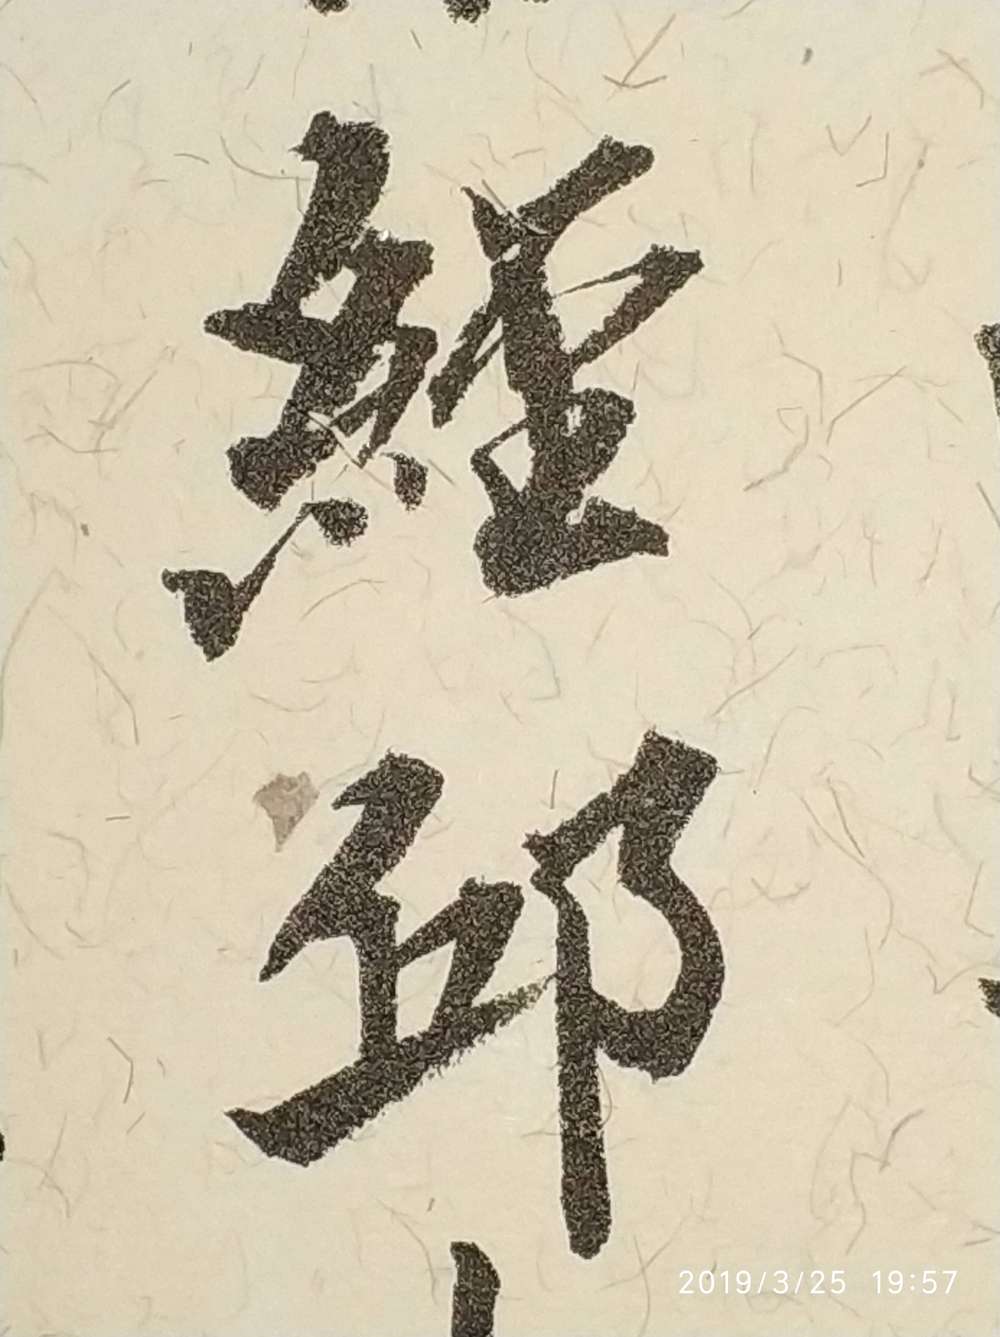 經
邱
2019/3/25 19:57